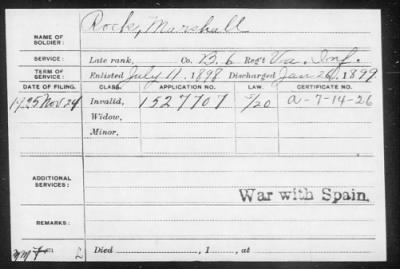 NAME OF SOLDIER: Rock, Marshall
SERVICE: Late rank, Co. B. 6 Reg't Va. Inf.
TERM OF SERVICE: Enlisted July 11, 1898 Discharged Jan 26, 1899
DATE OF FILING. CLASS. APPLICATION NO. LAW. CERTIFICATE NO.
1925 Nov 24 Invalid, 1527707 5/20 a-7-14-26
Widow,
Minor,
ADDITIONAL SERVICES:
War with Spain.
REMARKS:
Died , 1 , at